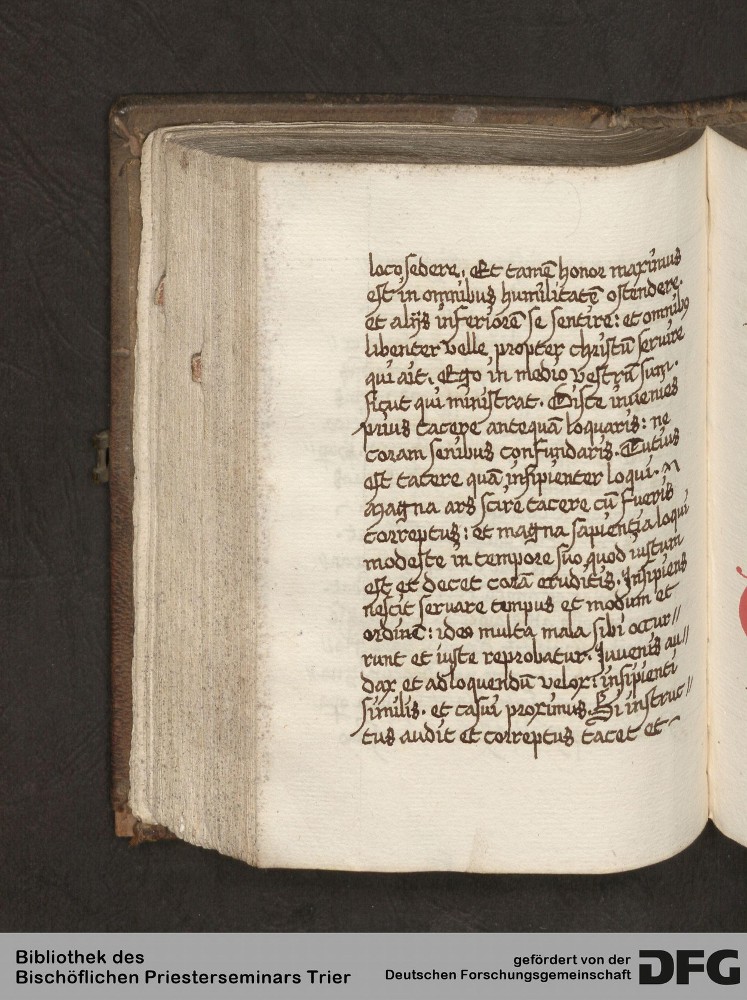 loco sedere. Et tamē honor maximus
est in omnibus humilitatē ostendere.
et alijs inferiorē se sentire: et omnibꝫ
libenter velle propter christū seruire
qui ait. Ego in medio vestrū sum.
sicut qui ministrat. Disce iuuenies
prius tacere antequā loquaris: ne
coram senibus confundaris. Tutius
est tacere quā insipienter loqui.
Magna ars scire tacere cū fueris
correptus: et magna sapientia loqui
modeste in tempore suo quod iustum
est et decet corā eruditis. Insipiens
nescit seruare tempus et modum et
ordinē: ideo multa mala sibi occur//
runt et iuste reprobatur. Iuuenis au//
dax et ad loquendū velox: insipienti
similis. et casui proximus. Si instruc//
tus audit et correptus tacet et
Bibliothek des
Bischöflichen Priesterseminars Trier
gefördert von der
Deutschen Forschungsgemeinschaft DFG